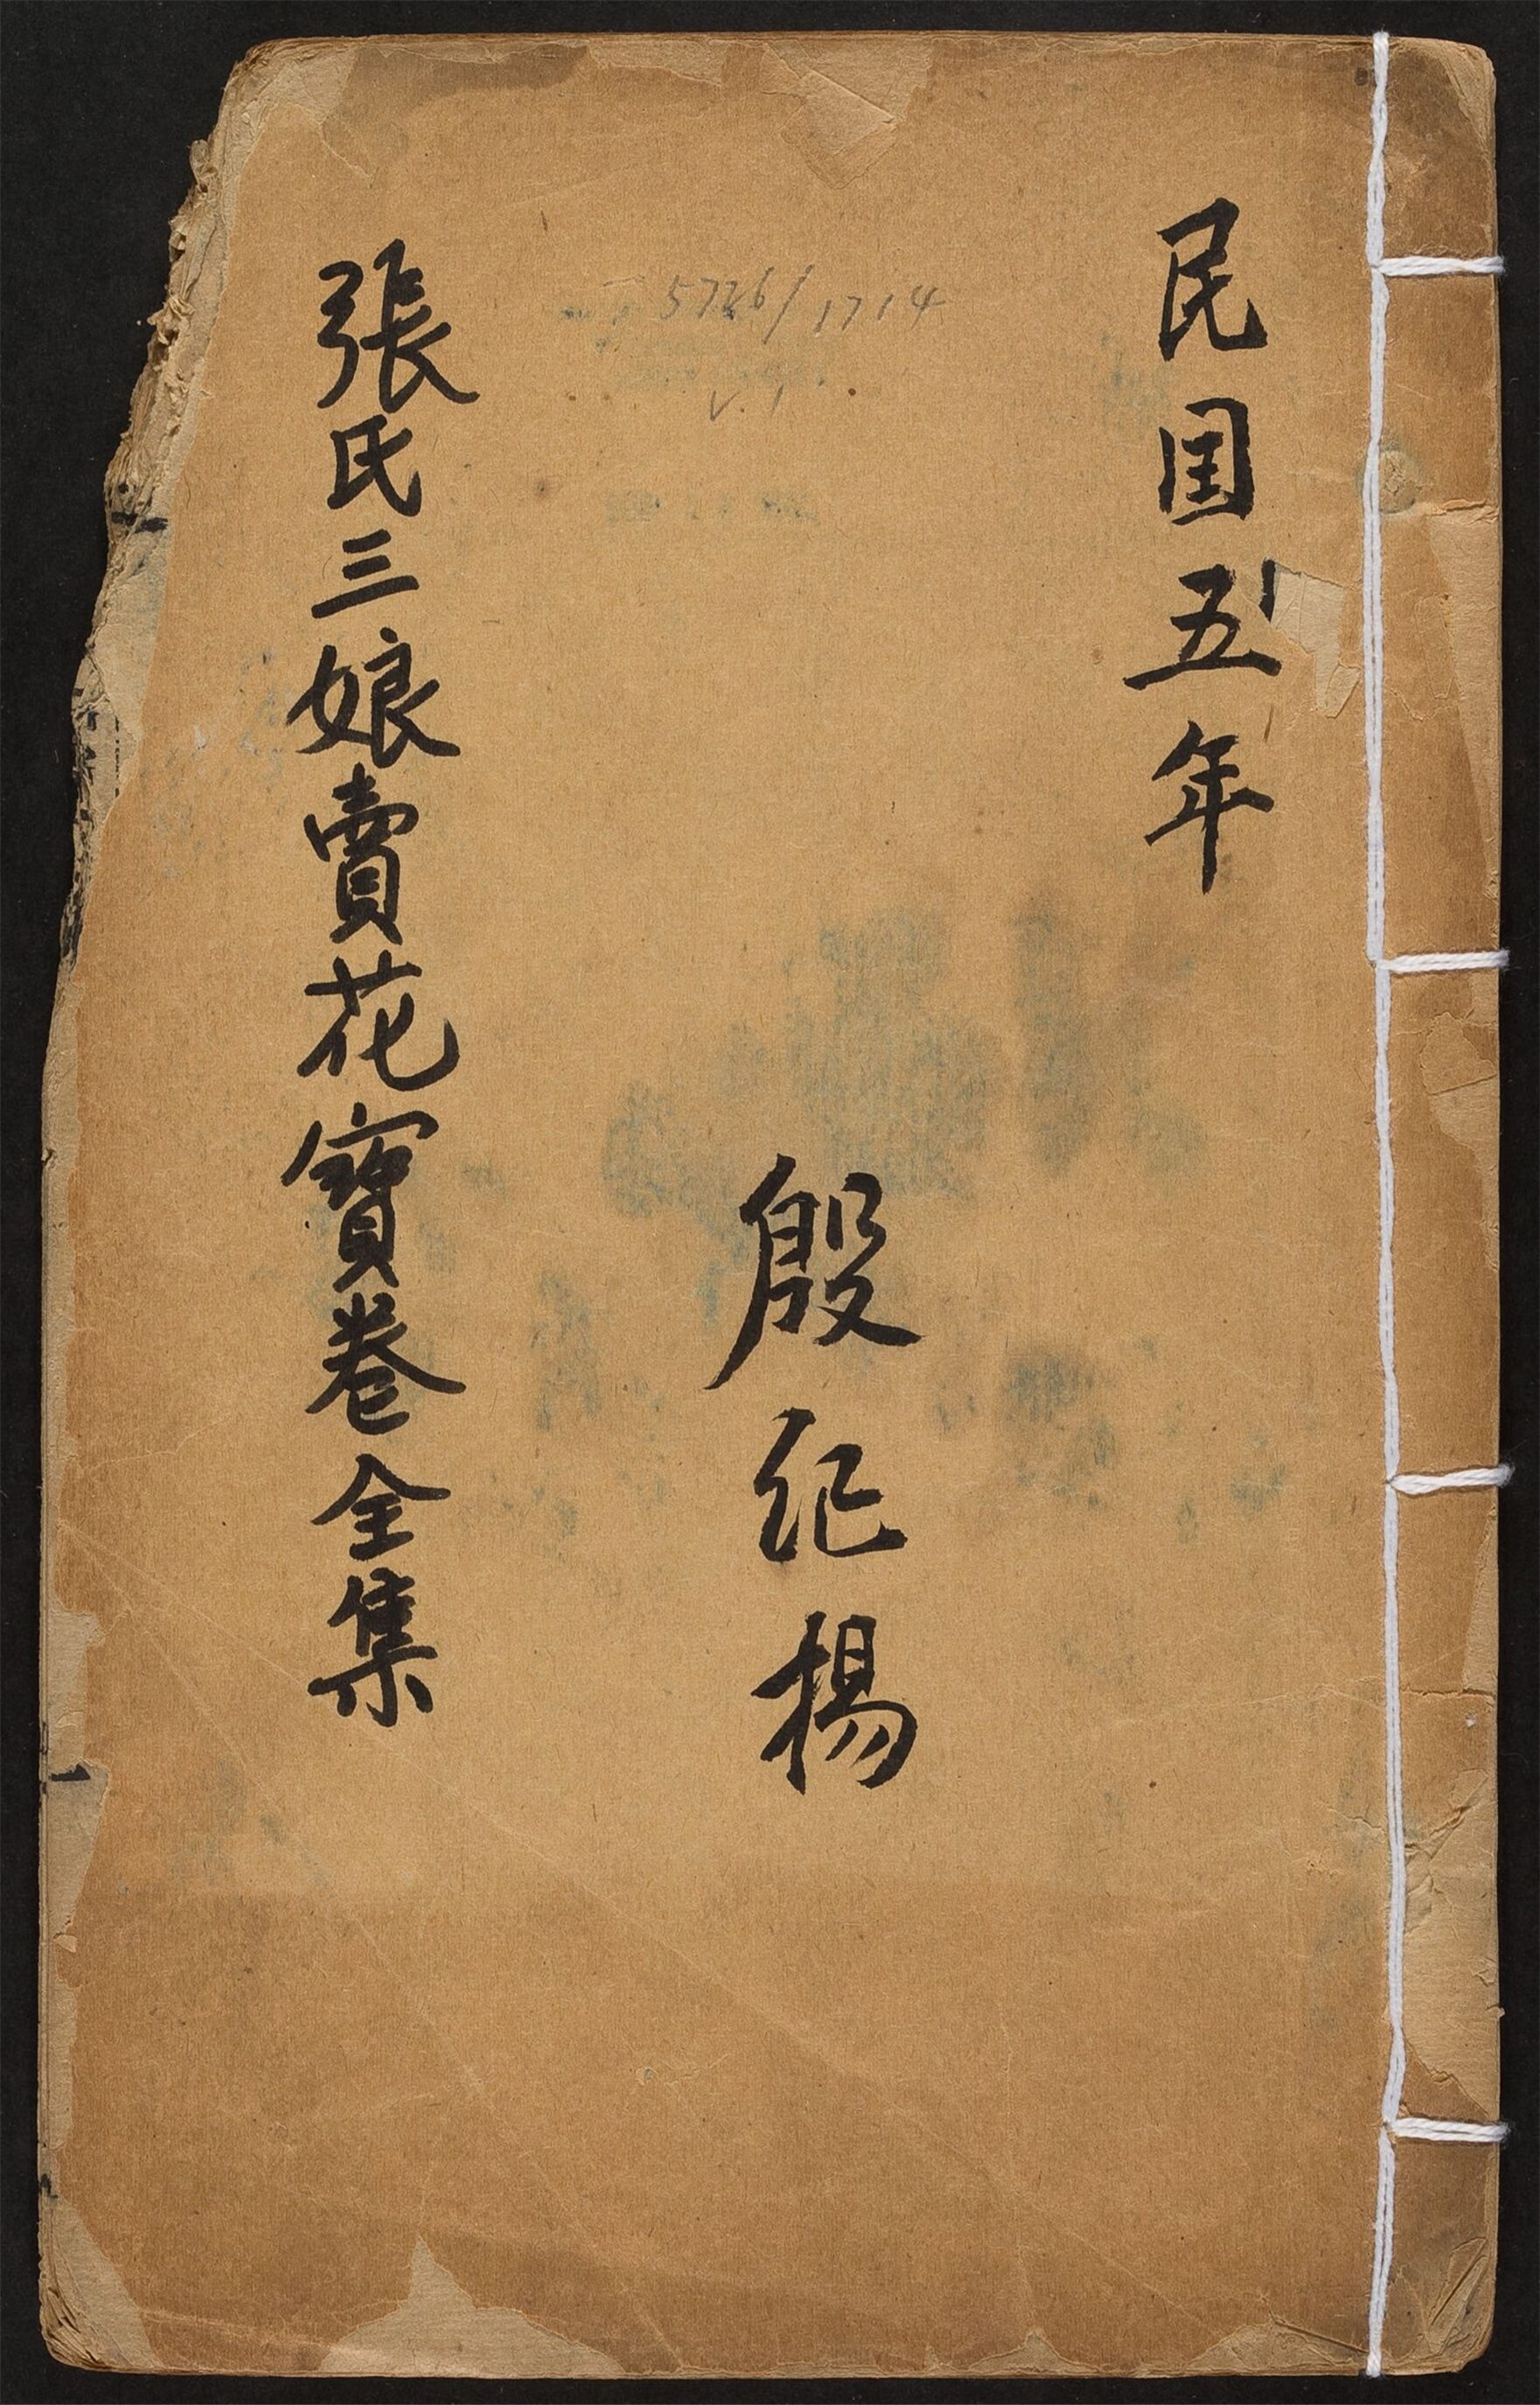 民国五年
5726/1714
v.1
殷纪揚
張氏三娘賣花寶卷全集